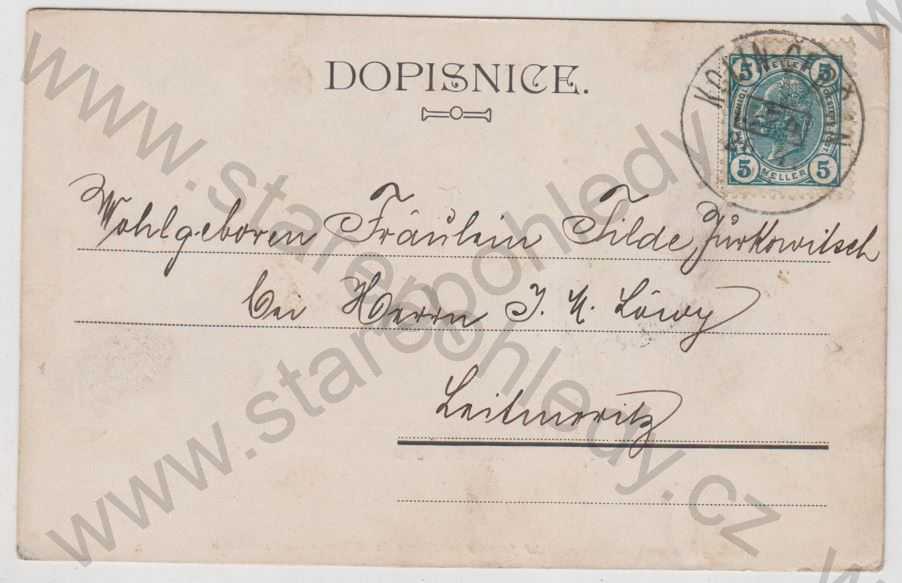 DOPISNICE.
5 HELLER 5
5 HELLER 5
Wohlgeboren Fräulein Tilde Jurkowitsch
bei Herrn J. K. Löwy
Leitmeritz
www.starepohledy.cz
www.starepohledy.cz